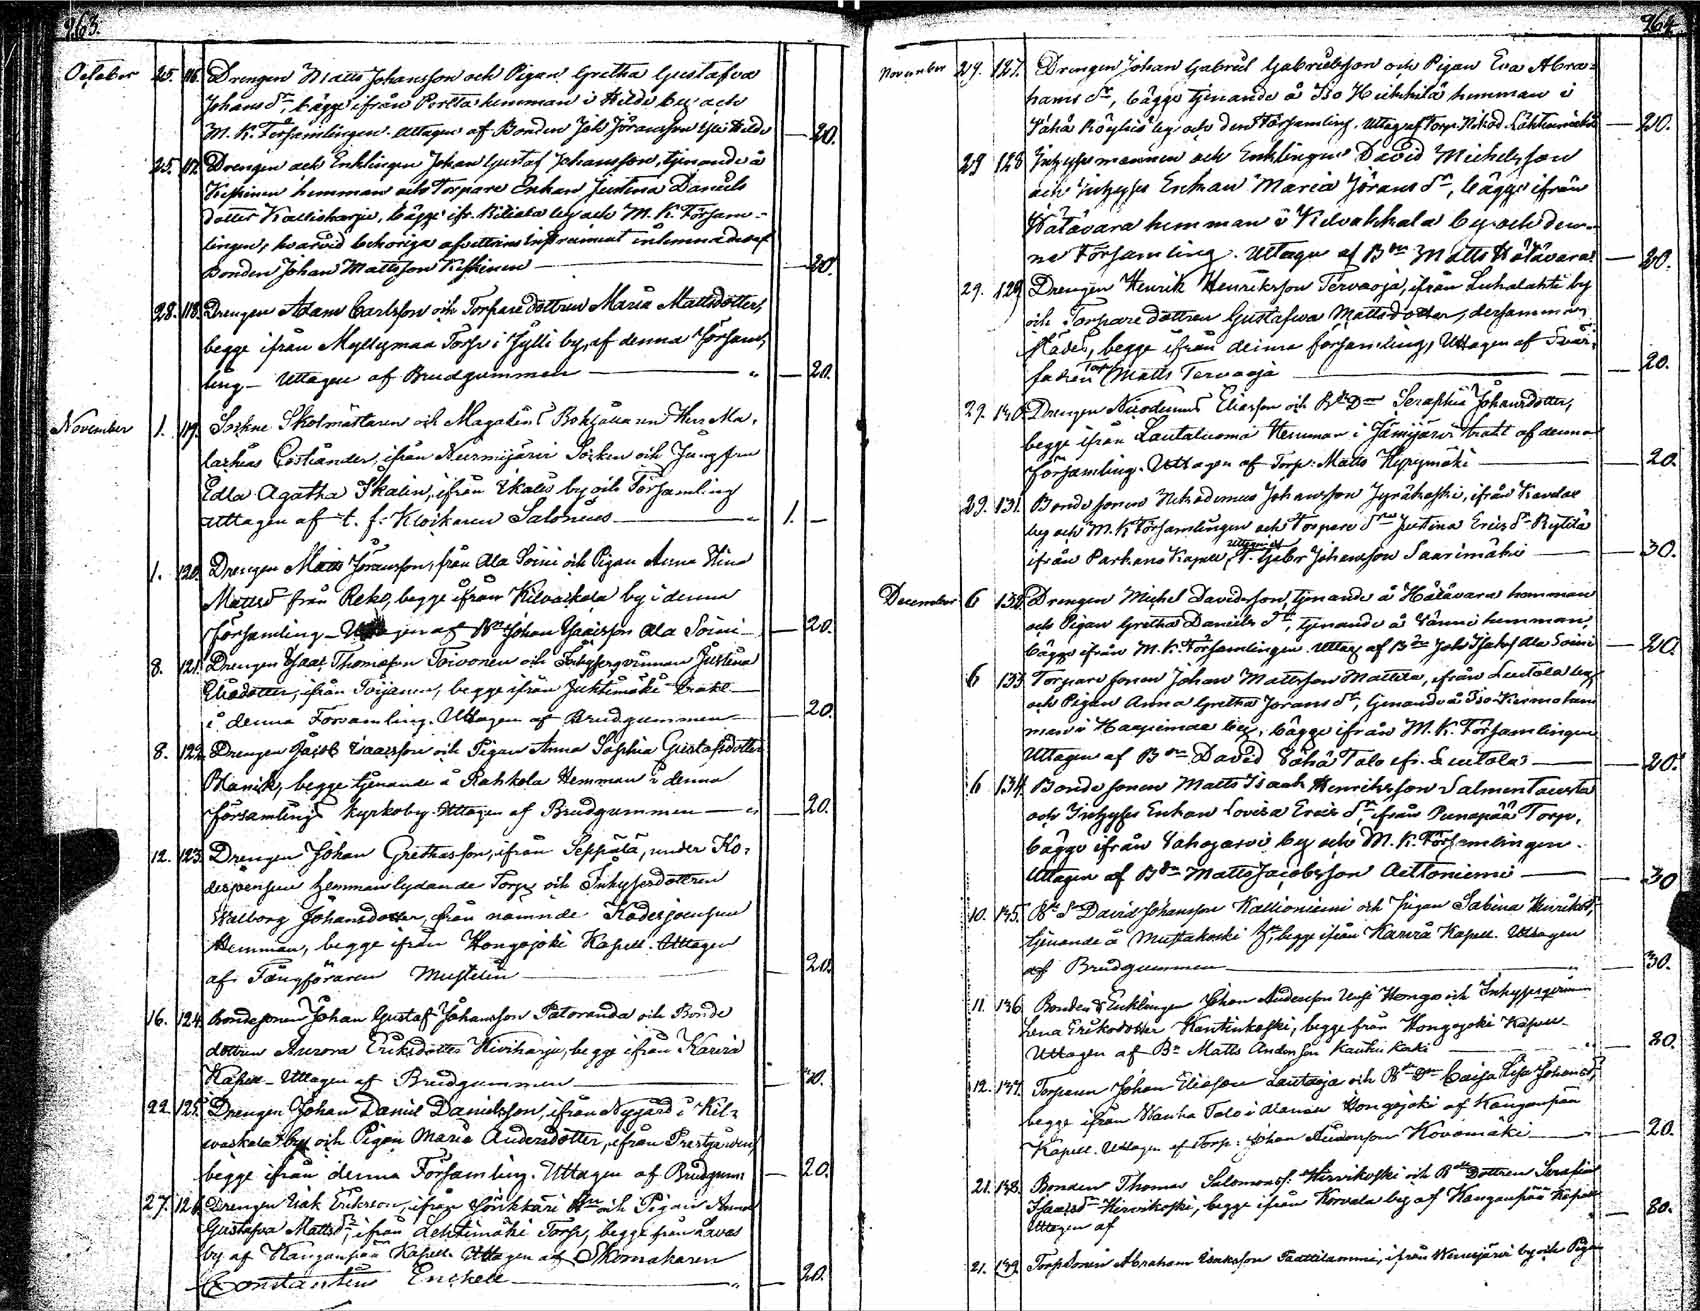 963.
October 25. 116. Drengen Matts Johansson och Pigan Gretha Gustafva
Johans dr, bägge ifrån Porila hemman i Hilde by och
M. K. Församlingen. Uttagen af Bonden Joh Jöransson 20.
25. 117. Drengen och Enklingen Johan Gustaf Johansson, tjenande å
Keskinen hemman och Torpare Enkan Justina Daniels
dotter Kallioharju, bägge ifr. by och M. K. Försam-
lingen, hvarvid behöriga afvittrings Instrument inlemnades af
Bonden Johan Mattsson Keskinen 20.
28. 118. Drengen Adam Carlsson och Torpare dottren Maria Mattsdotter,
begge ifrån Myllymaa Torp i Jylli by, af denna Försam-
ling - Uttagen af Brudgummen " 20.
November 1. 119. Sockne Skolmästaren och Magasins Bokhållaren Herr Ma-
lachias Costiander, ifrån Nurmijärvi Socken och Jungfru
Edla Agatha Skalin, ifrån Ikalis by och Församling
Uttagen af t. f. Klockaren Salonius " 1. -
1. 120. Drengen Matts Jöransson, från Ala Soini och Pigan Anna Stina
Mattsd från Reko, begge ifrån Kilvakkala by i denna
Församling - Uttagen af Bn Johan Isaacsson Ala Soini 20.
8. 121. Drengen Isaac Thomasson Toivonen och Inhysesqvinnan Justina
Eliædotter, ifrån Toijanen, begge ifrån Juhtimäki trakt
i denna Församling. Uttagen af Brudgummen 20.
8. 122. Drengen Jacob Isaacsson och Pigan Anna Sophia Gustafsdotter
begge tjenande å Rahkola Hemman i denna
Församlings Kyrkoby. Uttagen af Brudgummen " 20.
12. 123. Drengen Johan Grethasson, ifrån Seppälä, under Ko-
desjoensuu hemman lydande Torp och Inhysesdottren
Walborg Johansdotter, från nämnde Kodesjoensuu
Hemman, begge ifrån Hongojoki Kapell. Uttagen
af Fångföraren Mustelin 20.
16. 124. Bondesonen Johan Gustaf Johansson Patoranda och Bonde
dottren Aurora Eriksdotter Kiviharju, begge ifrån Karvia
Kapell - Uttagen af Brudgummen 20.
22. 125. Drengen Johan Daniel Danielsson, ifrån Nygård i Kil-
vaskala by och Pigan Maria Andersdotter, ifrån Prestgården,
begge ifrån denna Församling. Uttagen af Brudgum: 20.
27. 126. Drengen Isak Ericsson, ifrån Sönkkäri och Pigan Anna
Gustafva Mattsdr, ifrån Lehtimäki Torp, begge från
by af Kangonpää Kapell. Uttagen af Skomakaren
Constantin Enckell " 20.
964.
November 29. 127. Drengen Johan Gabriel Gabrielsson och Pigan Eva Abra-
hams dr, bägge tjenande å Iso Heikkilä hemman i
Wähä Röyhiö by och denna Församling. Uttag af Torp: Nikod. Lähteenmäki 20.
29 128 Inhyses mannen och Enklingen David Michelsson
och Inhyses Enkan Maria Jörans dr, bägge ifrån
Hätävara hemman i Kilvakkala by och den-
na Församling. Uttagen af Bdn Matts Hätävara 20.
29. 129 Drengen Henrik Henriksson Tervaoja, ifrån Luhalahti by
och Torpare dottren Gustafva Mattsdotter, dersammu-
städes, begge ifrån denna församling, Uttagen af Svär-
fadren Torp: Matts Tervaoja 20.
29. 130. Drengen Nicodemus Eliasson och Bde Dn Seraphia Johansdotter,
begge ifrån Lautaluoma Hemman i Jämijärvi trakt af denna
församling. Uttagen af Torp: Matts Myrymäki 20.
29. 131. Bonde sonen Nikodemus Johansson Jyräkoski, ifrån Kovelac
by och M. K. Församlingen och Torpare dr Justina Erics dr Kytölä
ifrån Parkano Kapell, Uttagen af T. Gabr Johansson Saarimäki 30.
December 6 132. Drengen Michel Davidsson, tjenande å Hätävara hemman
och Pigan Gretha Daniels dr, tjenande å Sänni hemman,
bägge ifrån M. K. Församlingen. Uttag af Bdn Joh Isaks Ala Soini 20.
6 133 Torpare sonen Johan Mattsson Mattila, ifrån Leutola by
och Pigan Anna Gretha Jörans dr, tjenande å Iso-Kirmo hem
man i Haapimaa by, bägge ifrån M. K. Församlingen
Uttagen af Bdn David Wähä Talo ifr. Leutola 20.
6 134 Bonde sonen Matts Isaak Henriksson Salmentausta
och Inhyses Enkan Lovisa Erics dr, ifrån Punapää Torp,
bägge ifrån Vahojärvi by och M. K. Församlingen.
Uttagen af Bdn Matts Jacobsson Aittoniemi 30
10. 135. Bde Sn David Johansson Kallioniemi och Pigan Sabina Henriksdr,
tjenande å Mustakoski Hn, begge ifrån Karvia Kapell. Uttagen
af Brudgummen " 30.
11. 136. Bonden & Enklingen Johan Andersson Uusi Hongo och Inhysesqvinn
Lena Eriksdotter Kantinkoski, begge från Hongojoki Kapell.
Uttagen af Bn Matts Andersson Kauhukoski " 30.
12. 137. Torparen Johan Eliasson Lautaoja och Bde Dn Caisa Lisa Johansdr,
begge ifrån Wanha Talo i Alanen Hongojoki af Kangonpää
Kapell. Uttagen af Torp: Johan Andersson Kovamäki " 20.
21. 138. Bonden Thomas Salomonss: Hirvikoski och Bde Dottren Serafina
Isaacsdr Hirvikoski, begge ifrån Korvala by af Kangonpää Kapell
Uttagen af " 80.
21. 139. Torp Sonen Abraham Isaksson Taattilammi, ifrån Wenesjärvi by och Pigan